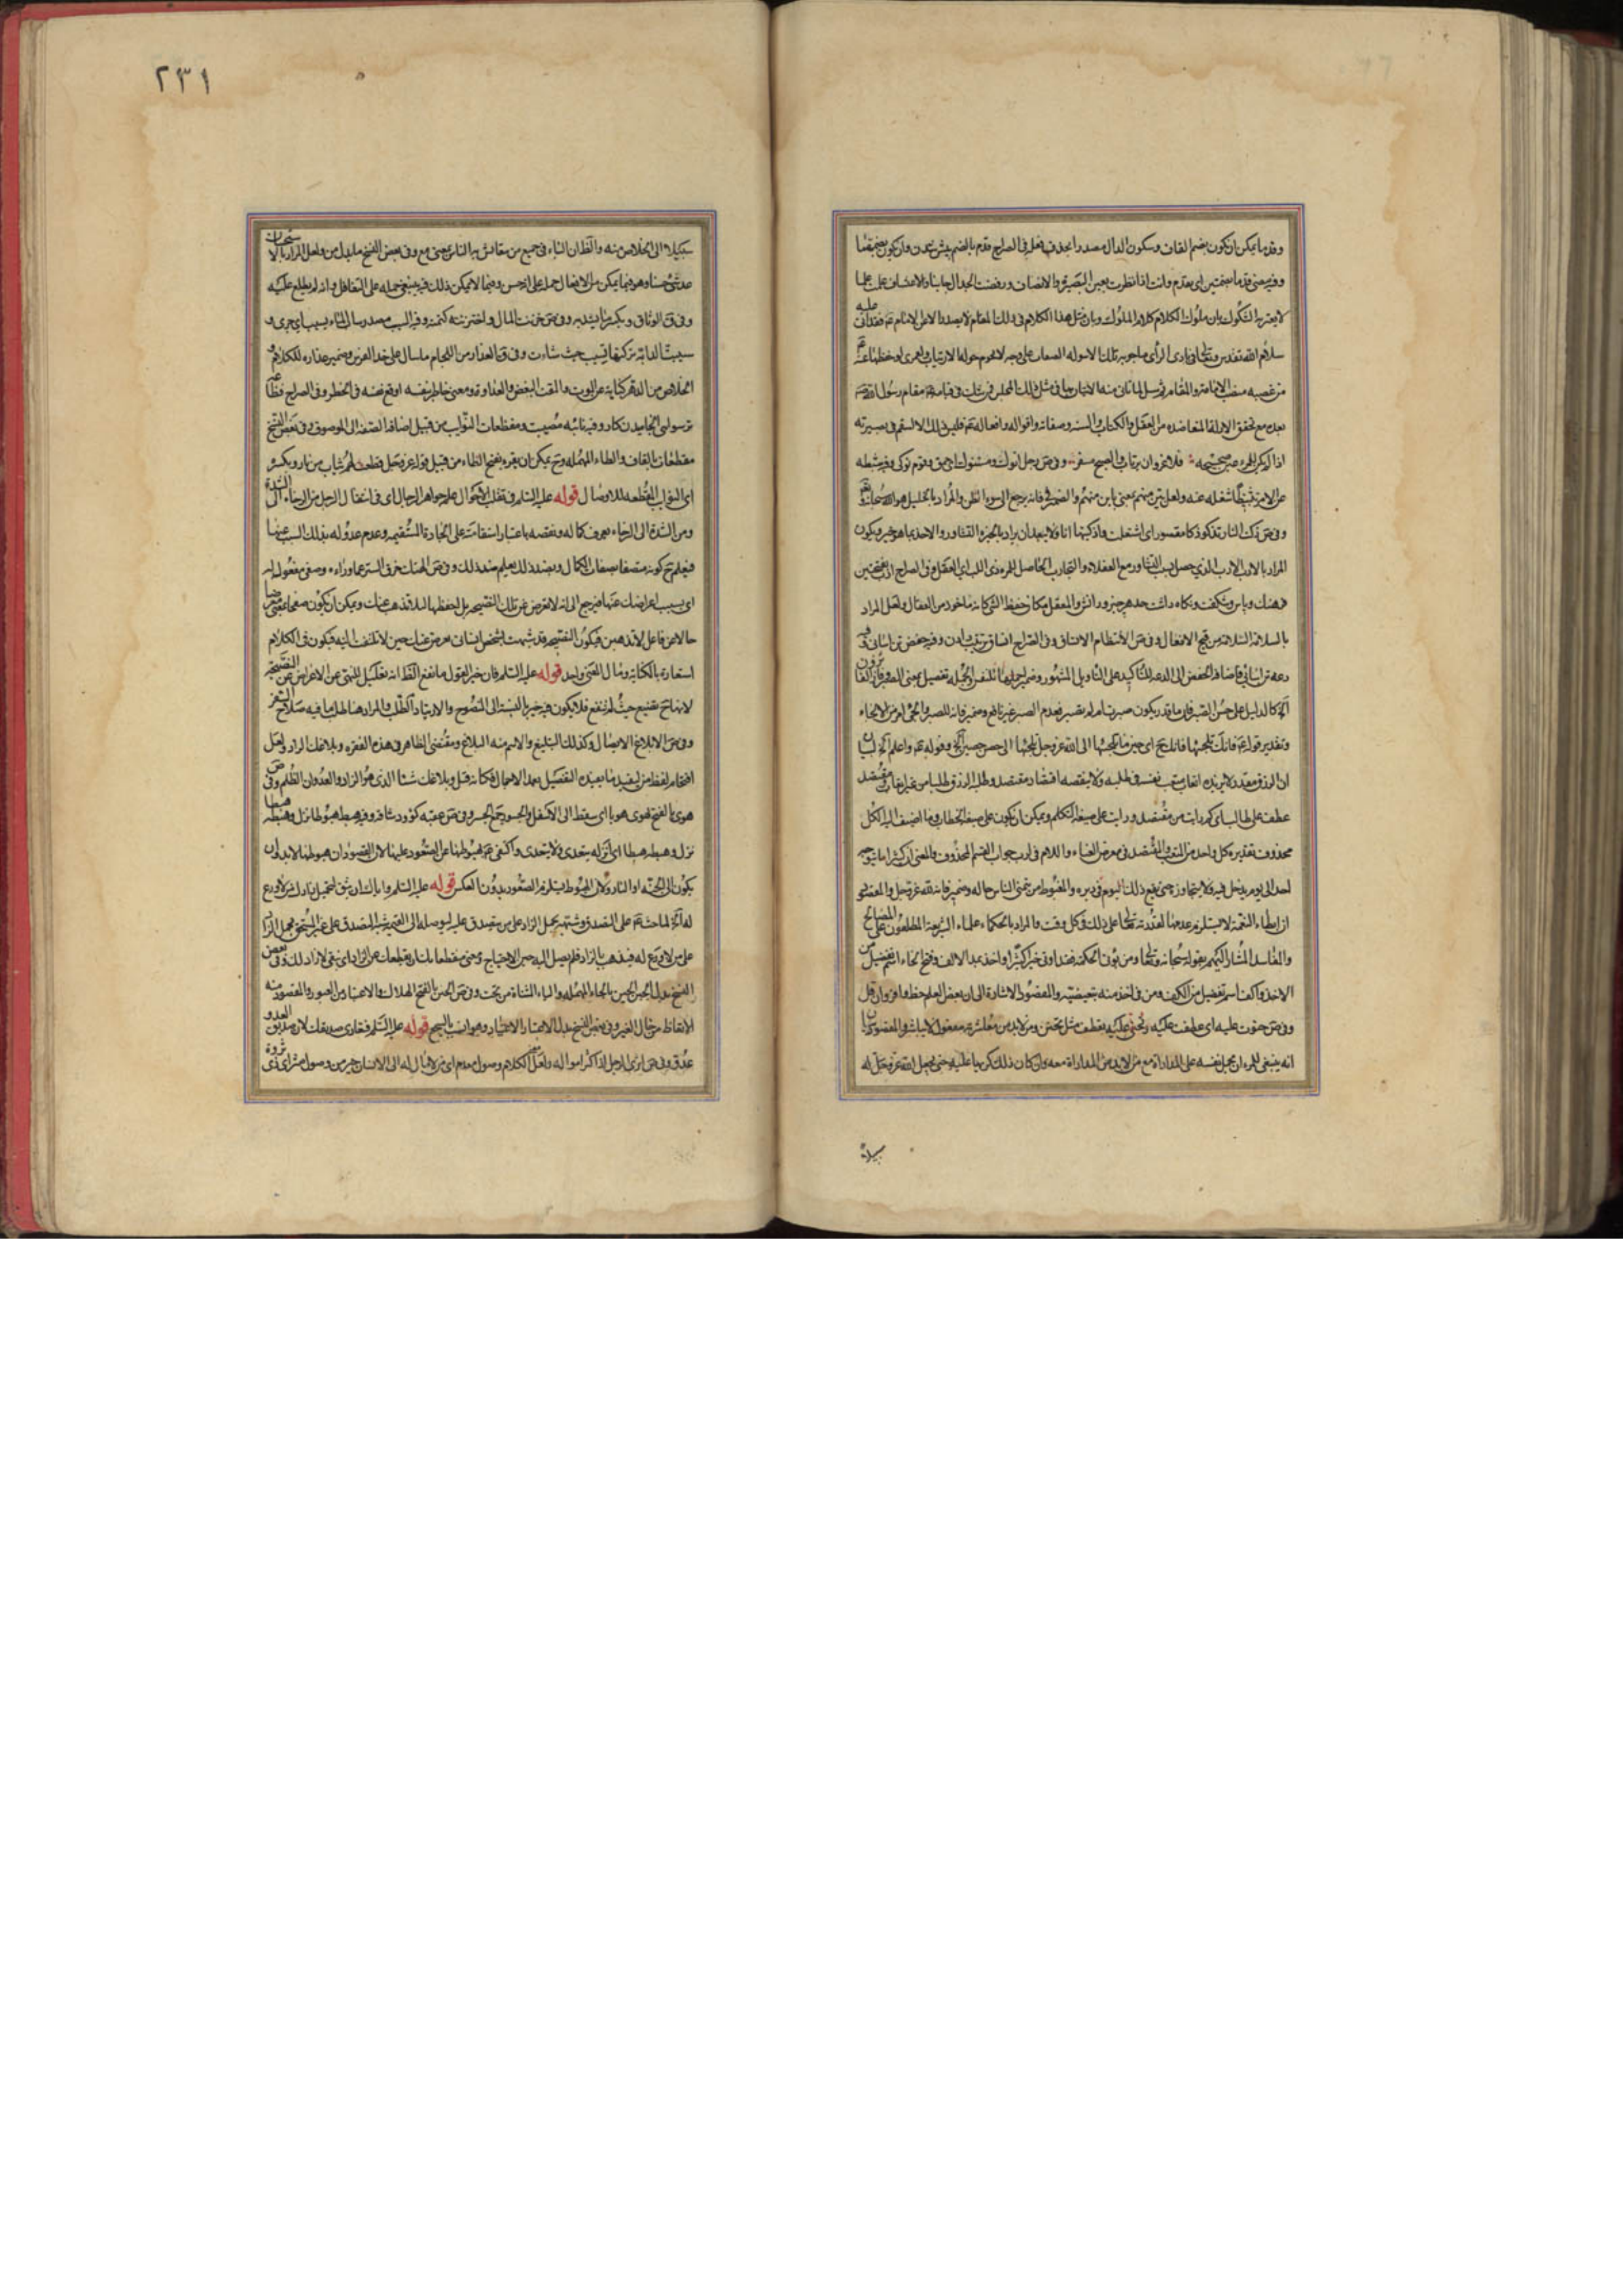 وقدما يمكن ان يكون بضم القاف وسكون الدال مصدرا بحذف فعل في الصراح قدم بالضم پيش شدن وان يكون بضمتين
وفيه مضى قدما بضمتين اى يقدم وانت اذا نظرت بعين البصيرة والانصاف ورفضت الجدال جانبا والاعتساف علمت علما
لا يعتريه الشكوك بان ملوك الكلام كلام الملوك وبان مثل هذا الكلام في ذلك المقام لا يصدر الا عن الامام
سلام الله
من غصبه منصب الامامة والمقام في مثل ذلك المجلس في قيامه مقام رسول الله
بعده مع تحقق الادلة المتعاضدة من العقل والكتاب والسنة وصفاته واقواله وافعاله فليس ذلك الا لسقم في بصيرته
اذا لم يكن للمرء عين صحيحة فلا غرو ان يرتاب والصبح مسفر وفي ص رجل انوك ومستنوك اى احمق وقوم نوكى وفيه ثبطه
عن الامر تثبيطا شغله عنه ولعل من منهم بمعنى يا بن منهم والضمير في فانه يرجع الى سوء الظن والمراد بالخليل هو الله سبحانه
وفي ص ذكت النار تذكو ذكا مقصور اى اشتعلت واذكيتها انا ولا يبعد ان يراد بالخبرة التشاور والاخذ بما هو خير ويكون
المراد بالادب الادب الذي حصل بسبب التشاور مع العقلاء والتجارب الحاصل للمرء ذي اللب اى العقل وفي الصراح ادب بفتحتين
فرهنك وپاس وشكفت ونكاه داشت حد هر چيز
بالسلامة السلامة من قبح الافعال وفي ص الانتظام الاتساق وفي الصراح
دعة تن اسانى فاضافة الخفض الى الدعة للتأكيد على التأويل المشهور وضمير احملها للنفس والجملة تفصيل بمعنى الصبر
آلخ كالدليل على حسن الصبر فان ما قدر يكون صبرت ام لم تصبر فعدم الصبر غير نافع وضمير فانه للصبر والجئ امر من الالجاء
وتقدير قوله فانك تلجئها فانك ح اى حين ما تلجئها الى الله عز وجل تلجئها الى حصن حصين آلخ وقوله واعلم آلخ لبيان
ان الرزق مقدر لا يزيده اتعاب متعب نفسه في طلبه ولا ينقصه اقتصاد مقتصد وطلب الرزق طلبا من غير اتعاب ومقتصد
عطف على طالب اى كم رايت من مقتصد ورايت على صيغة التكلم ويمكن ان يكون على صيغة الخطاب وما اضيف اليه الكل
محذوف تقديره كل واحد من المتعب والمقتصد في معرض الفناء واللام في لرب جواب القسم المحذوف والمعنى ان كثيرا ما يتوجه
احد الى يوم يدخل فيه ولا يتجاوز حتى يقع ذلك اليوم في دبره والمغبوط من يتمنى الناس حاله وضمير فانه لله عز وجل والمعنى
ان ابطاء النقمة لا يستلزم عدمها لقدرته تعالى على ذلك في كل وقت والمراد بالحكماء علماء الشريعة المطلعون على المصالح
والمفاسد المشار اليهم بقوله سبحانه وتعالى ومن يؤتى الحكمة فقد اوتي خيرا كثيرا واخذ بمد الالف وفتح الخاء اسم تفضيل من
الاخذ واكف اسم تفضيل من الكف ومن في اخذ منه تبعيضية والمقصود الاشارة الى ان بعض العلم حظ وافر وان قل
وفي ص حنوت عليه اى عطفت عليه وتحنى عليه تعطف مثل تحنن ومن لا بد من معاشرته مفعول لا يباشر والمقصود
انه ينبغي للمرء ان يحمل نفسه على المداراة مع من لا بد من المداراة معه وان كان ذلك كريها عليه حتى يجعل الله عز وجل له
سبيلا
٢٣١
سبيلا الى الخلاص منه والظان الباء في جميع من مقاساته الناس بمعنى مع وفي بعض النسخ ما بدل من ولعل المراد
صدق حسنا وهو فيما يمكن من الافعال حمله على الحسن وفيما لا يمكن ذلك فيه ينبغي حمله على التغافل وانه لم يطلع عليه
وفي ق الوثاق ويكسر ما يشد به وفي ص خزنت المال واختزنته كتمته وفيه السيب مصدر ساب الماء يسيب اى جرى و
سيبت الدابة تركتها تسيب حيث شاءت وفي ق العذار من اللجام ما سال على خد الفرس وضمير عذاره للكلام و
الخلاص من الدهر كناية عن الموت والمقت البغض والعداوة ومعنى خاطر بنفسه اوقع نفسه في الخطر وفي الصراح
ترسولى انجاميدن كار وفيه نائبه مصيبت ومفظعات النوايب من قبيل اضافة الصفة الى الموصوف وفي بعض النسخ
مقطعات بالقاف والطاء المهملة وح يمكن ان يقرء بفتح الطاء من قبيل قوله عز وجل قطعت لهم ثياب من نار وبكسر
اى النوايب المقطعه للاوصال قوله عليه السلم في تقلب الاحوال علم جواهر الرجال اى في انتقال الرجل من الرخاء الى الشدة
ومن الشدة الى الرخاء يعرف كماله ونقصه باعتبار استقامته على الجادة المستقيمة وعدم عدوله بذلك السبب عنها
فيعلم ح كونه متصفا بصفات الكمال وبضد ذلك يعلم ضد ذلك وفي ص الهتك خرق الستر عما وراءه وصفحا مفعول له
اى بسبب اعراضك عنها فيرجع الى انه لا تعرض عن تلك النصيحة بل احفظها لئلا تذهب عنك ويمكن ان يكون صفحا بمعنى
حالا عن فاعل لا تذهبن فيكون النصيحة قد شبهت بشخص انسان معرض عنك حين لا تلتفت اليه فيكون في الكلام
استعارة بالكناية ومآل المعنى واحد قوله عليه السلم فان خير القول ما نفع الظ انه تعليل للنهي عن الاعراض عن النصيحة
لانها ح تضيع حيث لم تنفع فلا يكون فيه خير بالنسبة الى المنصوح والارتياد الطلب والمراد هنا طلب ما فيه صلاح النفس
وفي ص الابلاغ الايصال وكذلك التبليغ والاسم منه البلاغ ومقتضى الظاهر في هذه الفقرة وبلاغك الزاد ولعل
اقحام لفظ من ليفيد ما يفيده التفصيل بعد الاجمال فكانه قيل وبلاغك شئا الذي هو الزاد والعدوان الظلم وفي ص
هوى بالفتح يهوى هويا اى سقط الى الاسفل والجسور جمع الجسر وفي ص عقبه كؤود شاقه وفيه هبط هبوطا نزل وهبطه هبطا
نزل وهبطه هبطا اى انزله يتعدى ولا يتعدى واكتفى بهبوطها عن الصعود عليها لان المقصود ان هبوطها لا بد ان
يكون الى الجنة او النار ولان الهبوط يستلزم الصعود بدون العكس قوله عليه السلم واياك ان تثق لتحميل زادك من لا ورع
له آلخ لما حث على التصدق وشبهه بحمل الزاد على من يتصدق عليه ليوصله الى القيمة شبه المتصدق على غير المستحق بحمل الزاد
على من لا ورع له فيذهب بالزاد فلم يصل اليه حين الاحتياج
النسخ بدل الجبن الحين بالحاء المهملة والياء المثناة من تحت وفي ص الحين بالفتح الهلاك والاعتبار من العبور والمقصود منه
الاتعاظ من حال الغير وفي بعض النسخ بدل الاعتبار الاختيار وهو انسب بالسجع قوله عليه السلم فتعادى صديقك لان صديق العدو
عدو وفي ص اثرى الرجل اذا كثر امواله ولعل معنى الكلام وصول معدم اى من لا مال له الى الانسان خير من وصول مثر اى ذى ثروة